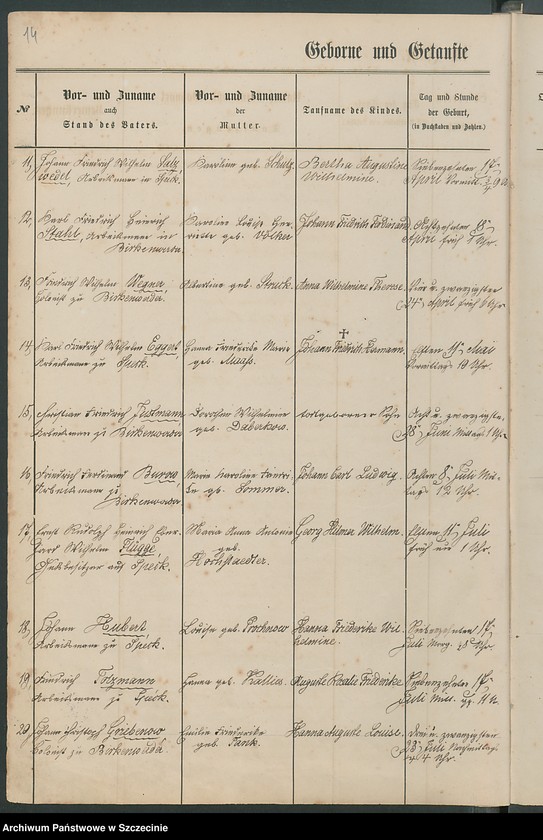 14
Geborne und Getaufte
№
Vor- und Zuname
auch
Stand des Vaters.
Vor- und Zuname
der
Mutter.
Taufname des Kindes.
Tag und Stunde
der Geburt,
(in Buchstaben und Zahlen.)
11, Johann Friedrich Wilhelm
Arbeitsmann in
Karoline geb. Schulz
Bertha Augustine
Wilhelmine.
Siebenzehnten 17
April Vormitt. 9
12, Karl Friedrich Heinrich
Stahl, Arbeitsmann in
Birkenwerder
Karoline Louise Hen-
riette geb. Völker
Johann Friedrich Ferdinand
Achtzehnten 18
April früh 1 Uhr.
13, Friedrich Wilhelm Wegner
Kolonist zu Birkenwerder.
Albertine geb. Struck.
Anna Wilhelmine Therese
Vier u. zwanzigsten
24 April früh 6 Uhr
14, Karl Friedrich Wilhelm Eggert
Arbeitsmann zu Speck.
Hanna Friederike Marie
geb. Maass.
Johann Friedrich Hermann.
elften 11 Mai
Vormittag 10 Uhr.
15, Christian Friedrich
Arbeitsmann zu Birkenwerder
Dorothea Wilhelmine
geb. Daberkow.
todtgeborner Sohn
Acht u. zwanzigsten
28 Juni Mittag 1 Uhr
16, Friedrich Ferdinand Burow
Arbeitsmann zu
Birkenwerder
Marie Karoline
geb. Sommer.
Johann Carl Ludwig.
Achten 8 Juli Mit-
tag 12 Uhr.
17, Ernst Rudolph Heinrich Eber-
hard Wilhelm Flügge
Gutsbesitzer auf Speck.
Maria Anna Antonie
geb.
Hochstaedter.
Georg Hilmer Wilhelm.
Elften 11 Juli
früh um 1 Uhr.
18, Johann Hubert
Arbeitsmann zu Speck.
Louise geb. Prochnow
Hanna Friederike Wil-
helmine.
Siebenzehnten 17
Juli Morg. 8 Uhr.
19, Friedrich Totzmann
Arbeitsmann zu Speck.
Hanna geb. Kallies.
Auguste Rosalie Friederike
Siebenzehnten 17
Juli
20, Johann Christoph Grübenow
Kolonist zu Birkenwerder
Emilie Friederike
geb. Tank.
Hanna Auguste Louise.
Drei u. zwanzigsten
23 Juli Nachmittag
4 Uhr.
Archiwum Państwowe w Szczecinie